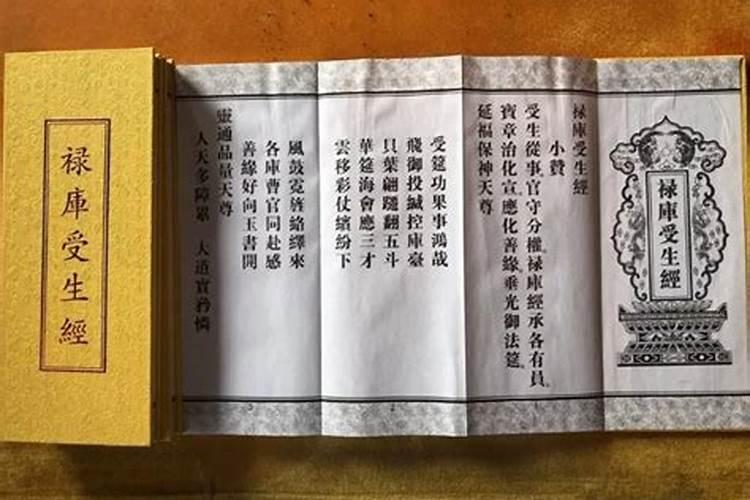 禄庫受生經
禄庫受生經
禄庫受生經
小贊
受生從事官守分權。禄庫經承各有員。
寶章治化宣應化善緣。垂光御法筵。
延福保神天尊
受筵功果事鴻哉
飛御投緘控庫臺
貝葉翩躚翻五斗
華筵海會應三才
雲移彩仗繽紛下
風鼓霓旌絡繹來
各庫曹官同赴感
善緣好向玉書開
靈通品量天尊
人天多障累 大道實矜憐